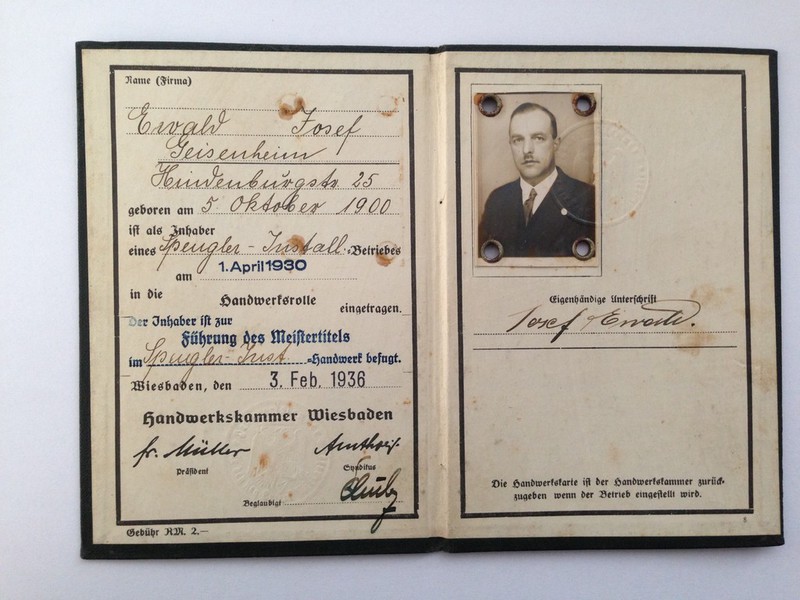 Name (Firma)
Ewald Josef
Geisenheim
Hindenburgstr. 25
geboren am 5. Oktober 1900
ist als Inhaber
eines Spengler-Install.-Betriebes
am 1. April 1930
in die Handwerksrolle eingetragen.
Der Inhaber ist zur
Führung des Meistertitels
im Spengler-Inst. -Handwerk befugt.
Wiesbaden, den 3. Feb. 1936
Handwerkskammer Wiesbaden
fr. Müller
Präsident
Syndikus
Beglaubigt
Gebühr RM. 2.—
Eigenhändige Unterschrift
Josef Ewald.
Die Handwerkskarte ist der Handwerkskammer zurück-
zugeben wenn der Betrieb eingestellt wird.